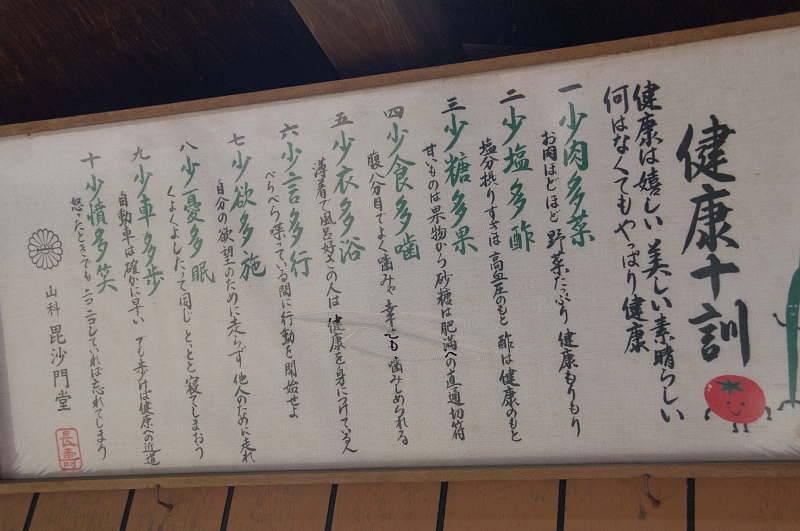 健康十訓
健康は嬉しい 美しい 素晴らしい
何はなくても やっぱり 健康
一 少肉多菜
お肉ほどほど 野菜たっぷり 健康もりもり
二 少塩多酢
塩分摂りすぎは 高血圧のもと 酢は健康のもと
三 少糖多果
甘いものは果物から 砂糖は肥満への直通切符
四 少食多噛
腹八分目でよく噛みゃ 幸せも噛みしめられる
五 少衣多浴
薄着で風呂好きの人は 健康を身につけている人
六 少言多行
べらべら喋っている間に行動を開始せよ
七 少欲多施
自分の欲望のために走らず 他人のために走れ
八 少憂多眠
くよくよしたって同じ とっとと寝てしまおう
九 少車多歩
自動車は確かに早い でも歩けば健康への近道
十 少憤多笑
怒ったときでも ニコニコしていれば忘れてしまう
山科 毘沙門堂
長寿